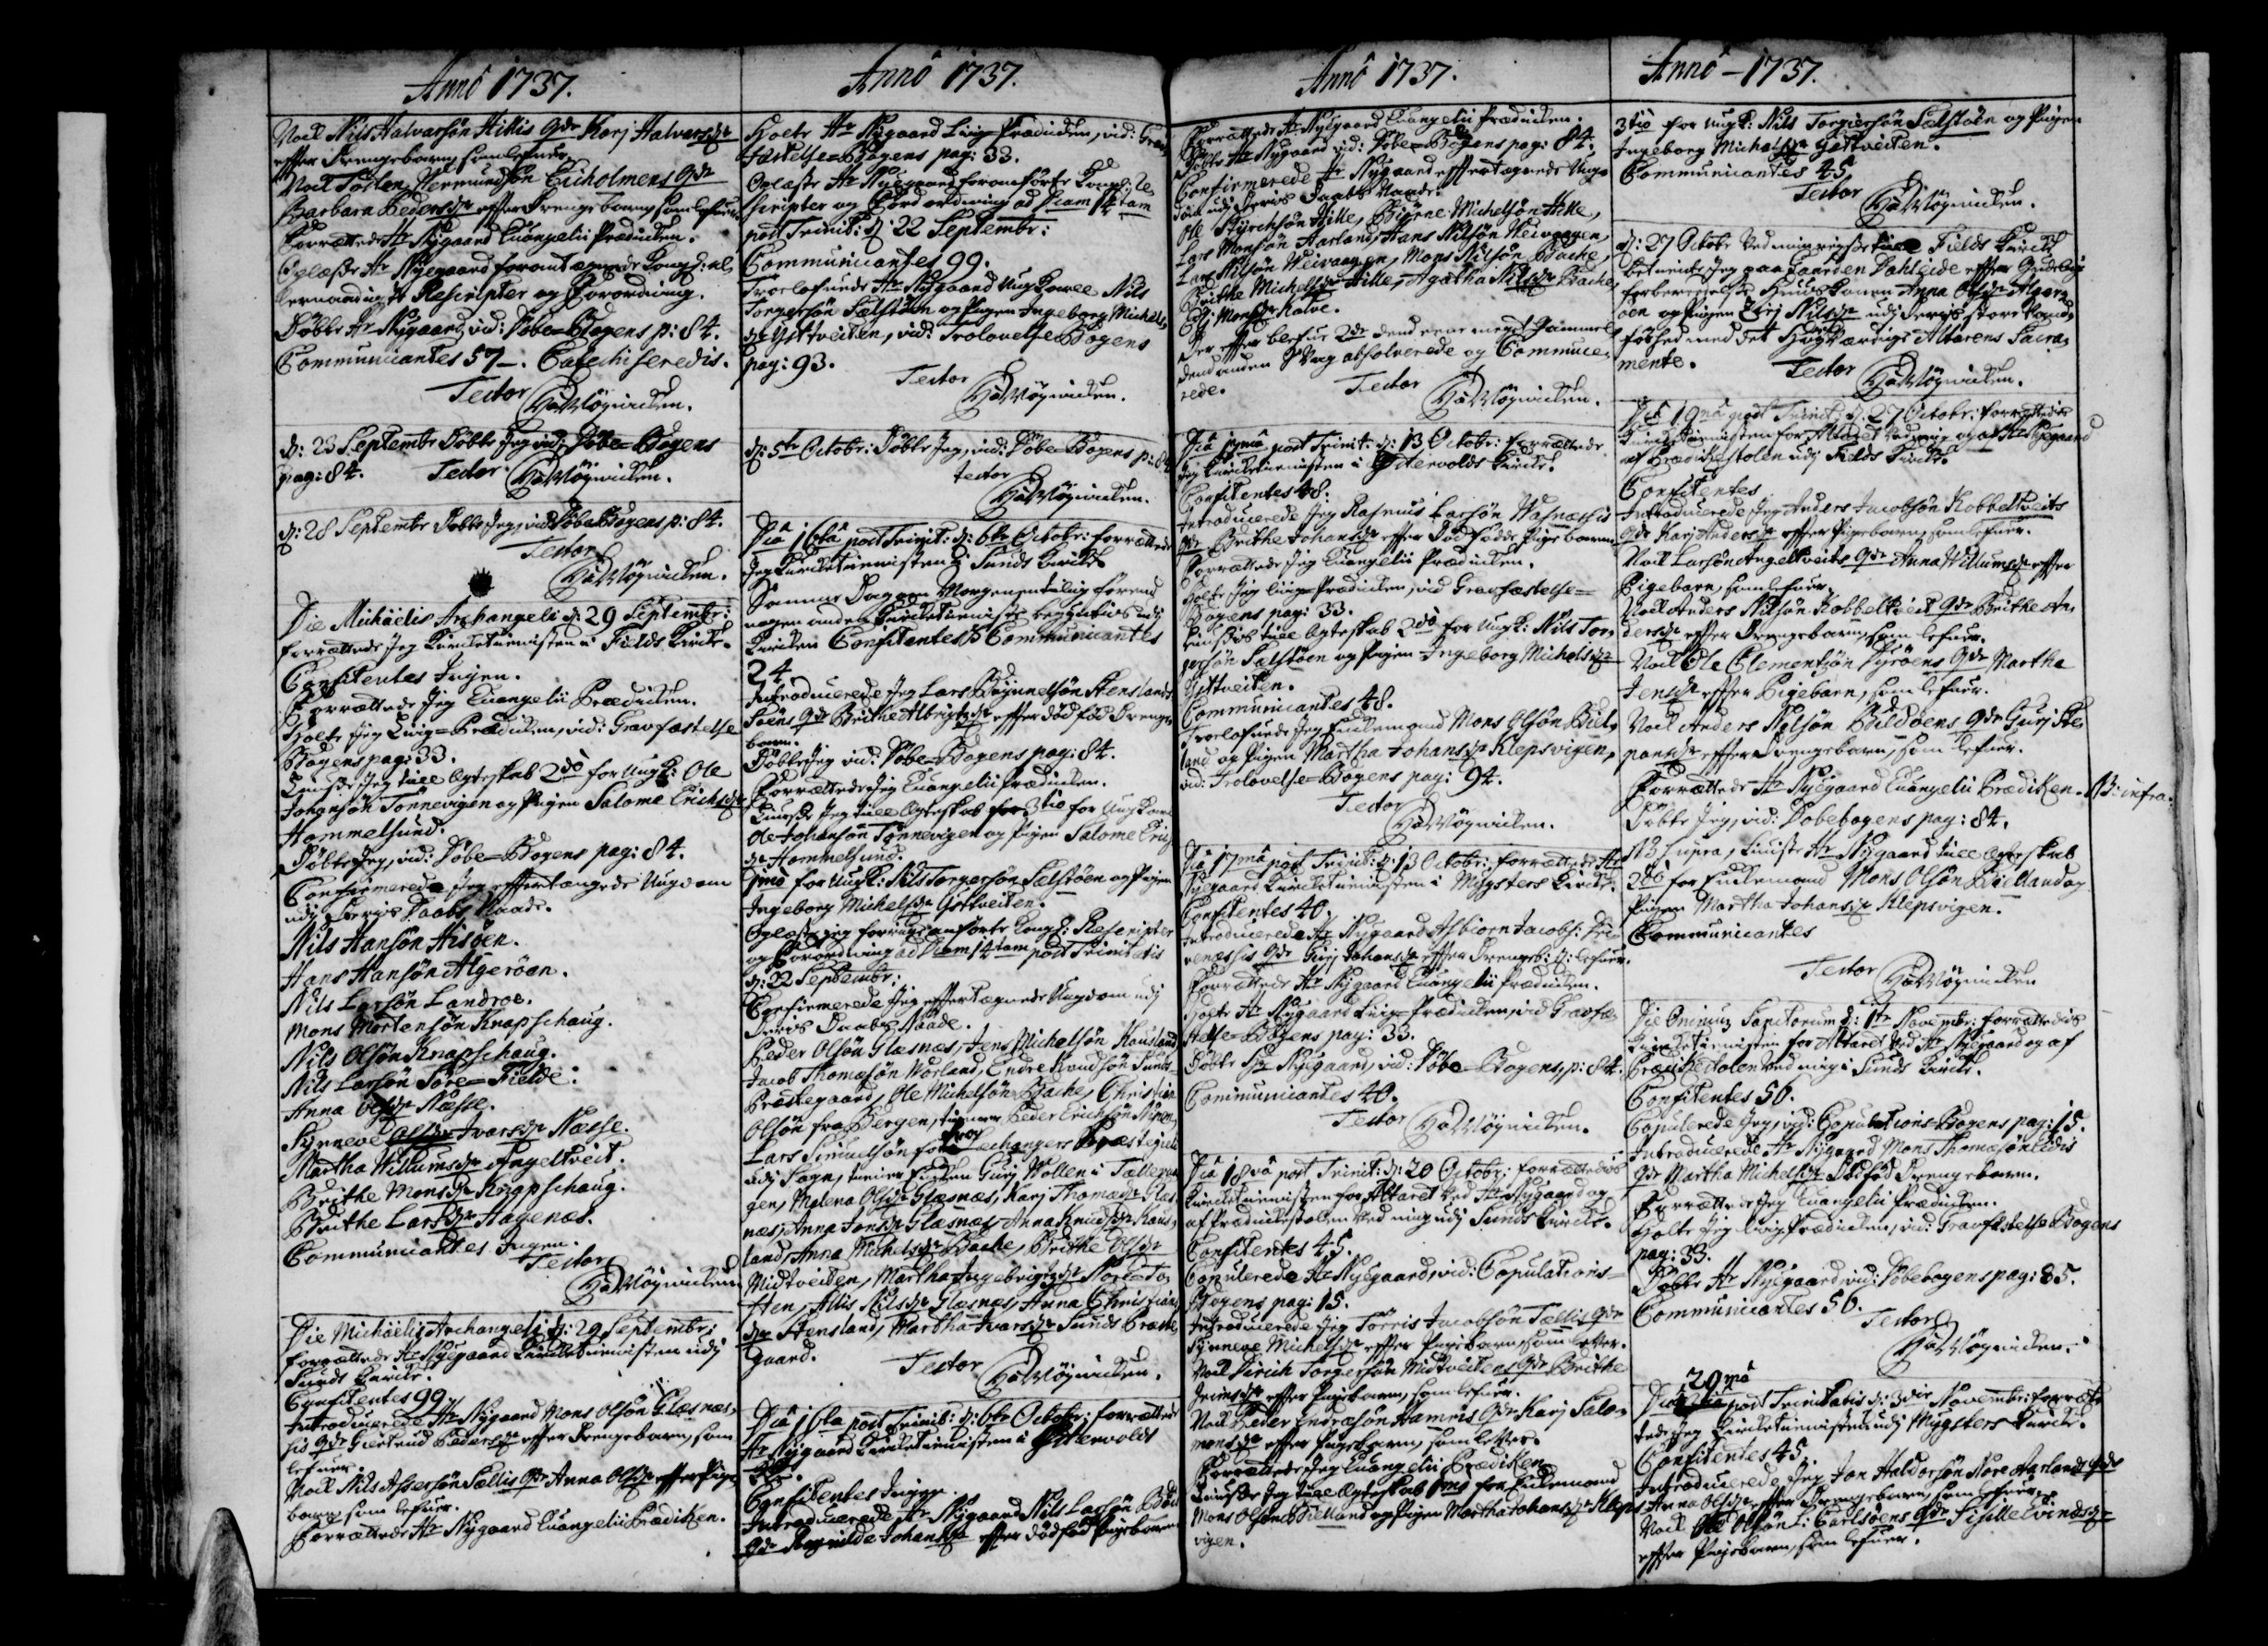 Anno 1737.
Noch Nils Halvorsøn Hillis Qde Karj Halvorsdr
effter Drengebarn, som lefuer.
Noch Torsten Vermundsøn Eicholmens Qde
Barbara Pedersdr effter Drengebarn som lefuer.
Forrættede Hr Nygaard Euangelii Prædicken.
Oplæste Hr Nyegaard foromtegnede
Rescripter og Forordning.
Døbte Hr Nygaard, vid: Døbe-Bogens p: 84.
Communicantes 57. Catechiseredis.
Testor
d: 23 Septembr Døbte Jeg, vid: Døbe-Bogens
pag: 84. Testor
d: 28 Septembr Døbte Jeg, vid: Døbe Bogens p: 84.
Testor
Die Michäelis Archangeli d: 29 Septembr:
forrættede Jeg Kircketienisten i Fields Kircke.
Confitentes Ingen.
Forrættede Jeg Euangelii Prædicken.
Holte Jeg Liig-Prædicken, vid: Gravfæstelse
Bogens pag: 33.
Liuste Jeg till Ægteskab 2do for Ungk: Ole
Johansøn Tønnevigen og Pigen Salome Erichsdr
Hommelsund.
Døbte Jeg, vid: Døbe-Bogens pag: 84.
Confirmerede Jeg effterlangede Ungdom
udj Deris Daabs Naade.
Nils Hansøn
Hans Hansøn Algerøen.
Nils Larsøn Landroe.
Mons Mortensøn Knapschaug.
Nils Olsøn Knapschaug.
Nils Larsøn Søre-Fielde.
Anna Olsdr Næsse.
Synneve Ivarsdr Næsse.
Martha Willumsdr Angeltveit.
Brithe Monsdr Knapschaug.
Brithe Larsdr Hagenæs.
Communicantes Ingen.
Testor
Die Michäelis Archangeli d: 29 Septembr:
forrættede Hr Nyegaard Kircketienisten udj
Sunds Kircke.
Confitentes 99.
Introducerede Hr Nygaard Mons Olsøn Glæsnæs
Qde Giertrud Pedersdr effter Drengebarn, som
lefuer.
Noch Nils Assersøn Tællis Qde Anna Olsdr effter Pige
barn, som lefuer.
Forrættede Hr Nygaard Euangelii Prædicken.
Anno 1737.
Holte Hr Nygaard Liig-Prædicken, vid: Grav
fæstelse-Bogens pag: 33.
Oplæste Hr Nyegaard foromførte Kongl: Re
scripter og Forordning ad Diam 14tam
post Trinit: d: 22 Septembr:
Communicantes 99.
Troelofuede Hr Nygaard Ungkarl Nils
Torgersøn Sælstøen og Pigen Ingeborg Michels
dr Gættveiten, vid: Trolovelse Bogens
pag: 93.
Testor
d: 5te Octobr: Døbte Jeg, vid: Døbe-Bogens p: 84
testor
Dia 16ta post Trinit: d: 6te Octobr: forrættede
Jeg Kircketienisten i Sunds Kircke
Samme Dag om Morgenen tilig førend
nogen anden Kircketieniste begyntis udj
Kircken Confitentes & Communicantes
24.
Introducerede Jeg Lars Brynnelsøn Stenslands
Qde Brithe Albrigtsdr effter død fød Drenge
barn.
Døbte Jeg vid: Døbe-Bogens pag: 84.
Forrættede Jeg Euangelii Prædicken.
Liuste Jeg till Ægteskab 3tio for Ungkarl
Ole Johansøn Tønnevigen og Pigen Salome Erich
dr Hommelsund.
1mo for Ungk: Nils Torgersøn Sælstøen og Pigen
Ingeborg Michelsdr Gættveiten.
Oplæste Jeg forrige anførte Kongl: Rescripter
og Forordning ad Diam 14tam post Trinitatis
d: 22 Septembr:
Confirmerede Jeg effterlegnede Ungdom udj
Deris Daabs Naade.
Peder Olsøn Glæsnæs, Jens Michelsøn Hausland
Jacob Thomæsøn Vorland, Endre Knudsøn Sunds
Præstegaard, Ole Michelsøn Bache, Christian
Olsøn fra Bergen, tiener Peder Erichsøn
Lars Simuelsøn fra Lechangers Præstegield
udj Sogn, tiener Gurj Wollen i Tællevaa
gen, Malena Olsdr Glæsnæs, Karj Thomædr Glæs
næs, Anna Jonsdr Glæsnæs, Anna Knudsdr Haus
land, Anna Michelsdr Bache, Brithe Olsdr
Midtveiten, Martha Ingebrigtsdr Nore-To
ften, Allis Nilsdr Glæsnæs, Anna Christians
dr Stensland, Martha Ivarsdr Sunds Præste
gaard. Testor
Dia 16ta post Trinit: d: 6te Octobr: forrættede
Hr Nygaard Kircketienisten i Østervolds
Kircke.
Confitentes Ingen.
Introducerede Hr Nygaard Nils Larsøn
Qde Ragnilde Johansdr effter død fød Pigebarn
Anno 1737.
Forrættede Hr Nygaard Euangelii Prædicken.
Døbte Hr Nygaard vid: Døbe-Bogens pag: 84.
Confirmerede Hr Nygaard effterlegnede Ung
dom udj Deris Daabs Naade.
Ole Styrchsøn Hille, Biørne Michelsøn Hille,
Lars Monsøn Harland, Hans Nilsøn Weivaagen,
Lars Nilsøn Weivaagen, Mons Nilsøn Bache,
Brithe Michelsdr Hille, Agatha Nilsdr Bache
Monsdr Kalve.
Testor
Dia 17ma post Trinit: d: 13 Octobr: forrættede
Jeg Kircketienisten i Østervolds Kircke.
Confitentes 48.
Introducerede Jeg Rasmus Larsøn Wasnæssis
Qde Brithe Johansdr effter Dødfødde Pige barn.
Forrættede Jeg Euangelii Prædicken.
Holte Jeg Liig-Prædicken, vid Gravfæstelse-
Bogens pag: 33.
Liustis till Ægteskab 2do for Ungk: Nils Tor
gersøn Sælstøen og Pigen Ingeborg Michelsdr
Gættveiten.
Communicantes 48.
Troelofuede Jeg Enckemand Mons Olsøn Biel
land og Pigen Martha Johansdr Klepsvigen,
vid: Trolovelse-Bogens pag: 94.
Testor
Dia 17ma post Trinit: d: 13 Octobr: forrættede Hr
Nygaard Kircketienisten i Møgsters Kircke.
Confitentes 40.
Introducerede Hr Nygaard Asbiørn Jacobs:
Qde Gurj Johansdr effter Drengeb: s: lefuer.
Forrættede Hr Nygaard Euangelii Prædicken.
Holte Hr Nygaard Liig-Prædicken, vid Gravfæ
stelse-Bogens pag: 33.
Døbte Hr Nygaard, vid: Døbe-Bogens, p: 84.
Communicantes 40.
Testor
Dia 18va post Trinit: d: 20 Octobr: forrættedis
Kircketienisten for Alteret ved Hr Nygaard og
af Prædickestolen ved mig udj Sunds Kircke.
Confitentes 45.
Copulerede Hr Nyegaard, vid: Copulations-
Bogens pag: 15.
Introducerede Jeg Torris Jacobsøn Tællis Qde
Synneve Michelsdr effter Pigebarn, som lefver.
Noch Dirich Torgersøn Midtveitens Qde Brithe
effter Pigebarn, som lefuer.
Noch Peder Endræsøn Hamris Qde Karj Salo
monsdr effter Pigebarn, som lefver.
Forrættede Jeg Euangelii Prædicken
Liuste Jeg till Ægteskab 1mo for Enckemand
Mons Olsøn Bielland og Pigen Martha Johansdr Kleps
vigen.
Anno - 1737.
3tio for Ungk: Nils Torgiersøn Sælstøen og Pigen
Ingeborg Michelsdr Gættveiten.
Communicantes 45
Testor
d: 27 Octobr ved min reigse till Fields Kircke
betiente Jeg paa Gaarden Dahleide effter Gudelig
forberedelse Huus Konen Anna Olsdr Alger
øen og Pigen Nilsdr udj Deris store Vand
førhed med det Høyværdige Alterens Sacra
mente. Testor
Dia 19na post Trinit: d. 27 Octobr: forrættedis
Kircketienisten for Alteret ved mig og af Hr Nyegaard
af Prædickestolen udj Fields Kircke.
Confitentes
Introducerede Jeg Anders Jacobsøn Kobbeltveits
Qde Karj Andersdr effter Pigebarn, som lefuer.
Noch Larsøn Angeltveits Qde Anna Willumsdr effter
Pigebarn, som lefuer.
Noch Anders Nilsøn Kobbeltveit Qde Brithe An
dersdr effter Drengebarn, som lefuer.
Noch Ole Clementsøn Syrøens Qde Martha
Jensdr effter Pigebarn, som lefuer.
Noch Anders Nilsøn Buldøens Qde Gurj Ste
pansdr effter Drengebarn, som lefuer.
Forrættede Hr Nyegaard Euangelii Prædicken. NB: infra.
Døbte Jeg, vid: Døbebogens pag: 84.
NB supra, Liuste Hr Nygaard till Ægteskab
2do for Enckemand Mons Olsøn Bielland og
Pigen Martha Johansdr Klepsvigen.
Communicantes
Testor
Die Omnium Sanctorum d: 1te Novembr: forrættedis
Kircketienisten for Alteret ved Hr Nyegaard og af
Prædickestolen ved mig i Sunds Kircke.
Confitentes 56.
Copulerede Jeg, vid: Copulations-Bogens pag: 15.
Introducerede Hr Nygaard Mons Thomæsøn Eidis
Qde Martha Michelsdr Dødfød Drengebarn.
Forrættede Jeg Euangelii Prædicken.
Holte Jeg Liig Prædicken, vid: Gravfæstelse Bogens
pag: 33.
Døbte Hr Nyegaard, vid: Døbebogens pag: 85.
Communicantes 56. Testor
20ma
Dia post Trinitatis d: 3die Novembr: forræt
tede Jeg Kircketienisten udj Møgsters Kircke.
Confitentes 45.
Introducerede Jeg Jon Haldorsøn Nore Harlands Qde
Anna Olsdr effter Drengebarn, som lefuer.
Noch Ole Olsøn L: Carlsøens Qde Sisille Eivindsdr
effter Pigebarn, som lefuer.